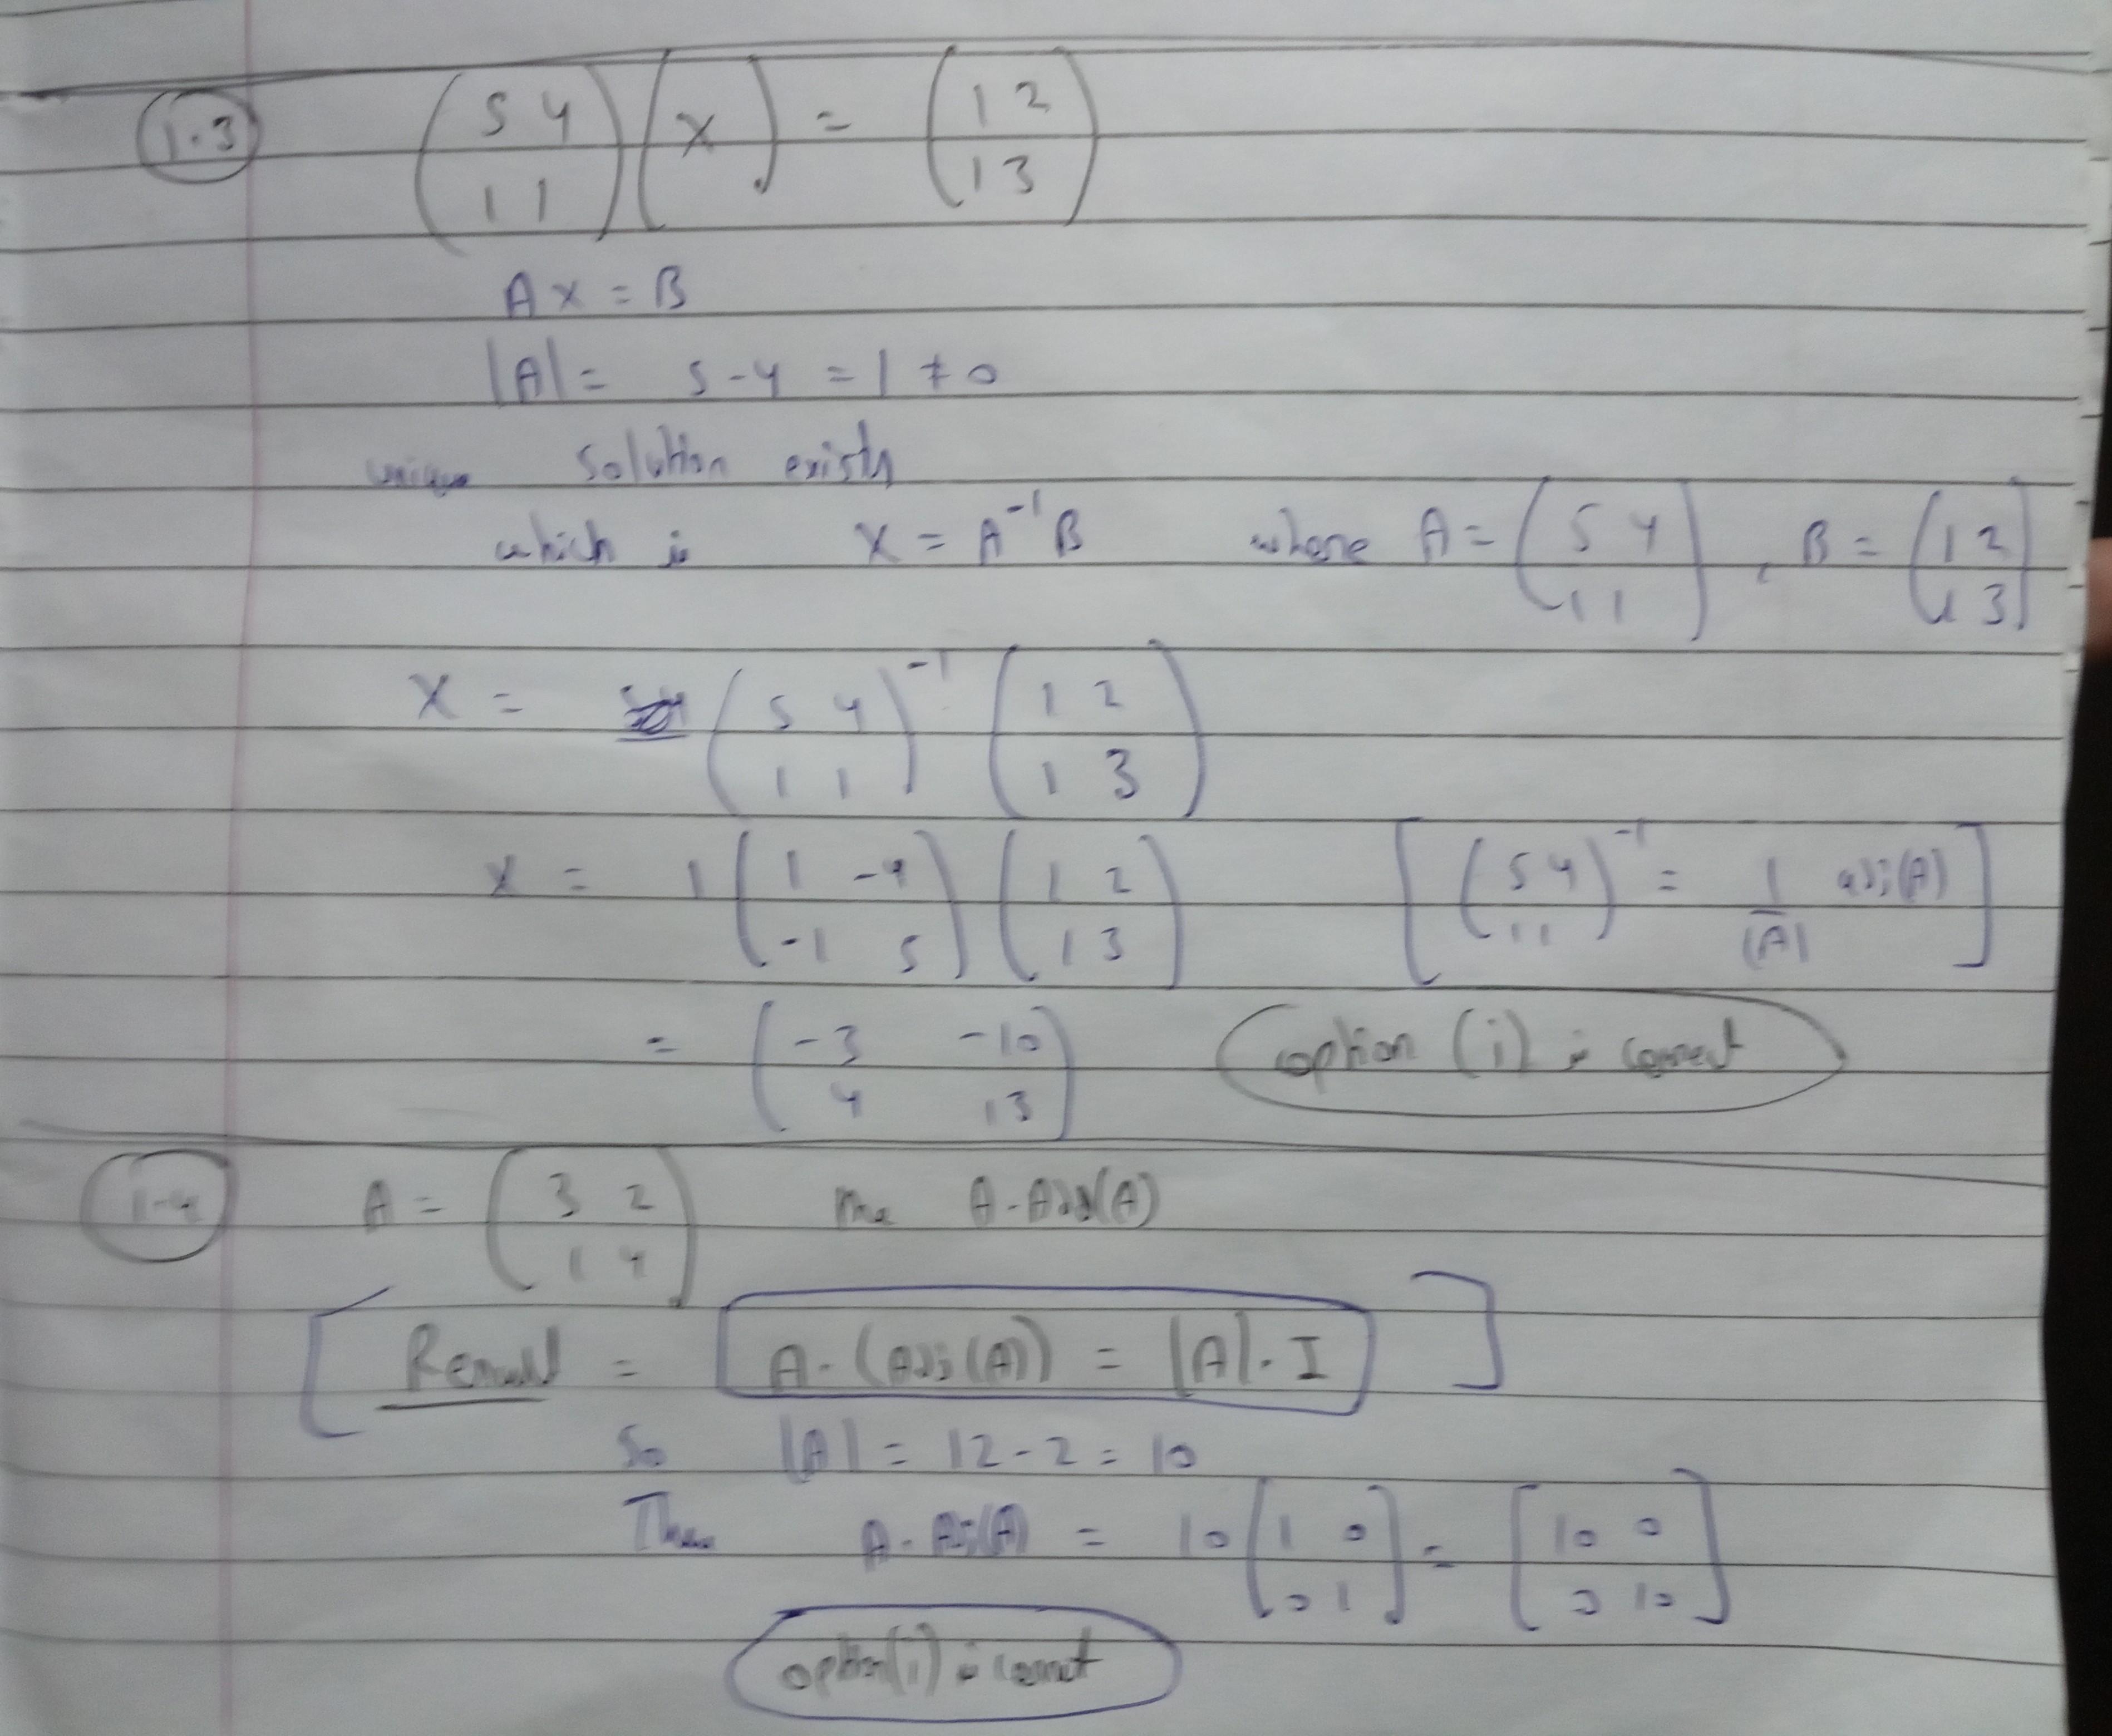 1.3 (5 4 (X) = (1 2
1 1) 1 3)
AX = B
|A| = 5-4 = 1 ≠ 0
unique solution exists
which is X = A⁻¹B where A = (5 4 , B = (1 2
1 1) 1 3)
X = (5 4 ⁻¹ (1 2
1 1) 1 3)
X = 1 (1 -4 (1 2 [(5 4 ⁻¹ = 1 adj(A)]
-1 5) 1 3) 1 1) |A|
= (-3 -10 option (i) is correct
4 13)
1-4 A = (3 2 the A-Adj(A)
1 4)
[Result = A-(Adj(A)) = |A|. I]
So |A| = 12-2 = 10
Then A-Adj(A) = 10 [1 0 = [10 0
0 1] 0 10]
option(i) is correct